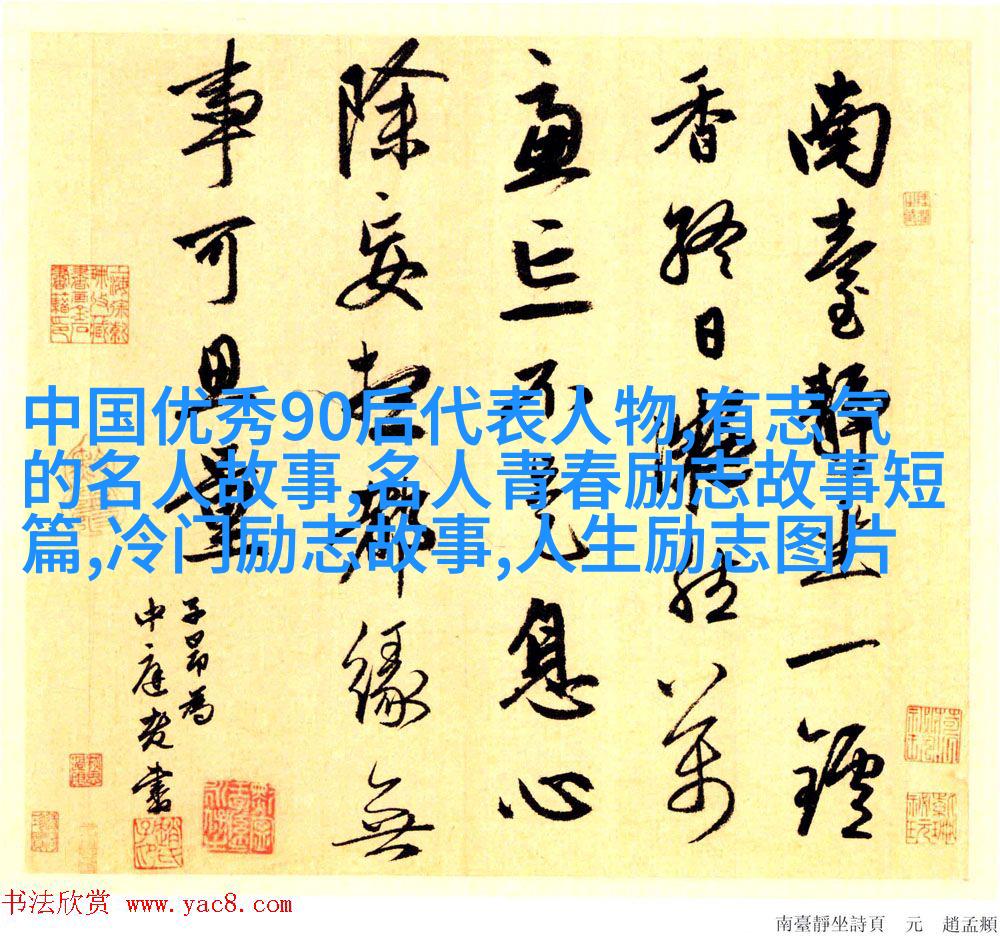 南臺靜坐一鑪
香終日凝然萬
慮亡不是息心
除妄想都緣無
事可思量
子昂為
中庭老書
中国优秀90后代表人物,有志气
的名人故事,名人青春励志故事短
篇,冷门励志故事,人生励志图片
书法欣赏 www.yac8.com
南臺靜坐詩頁 元 趙孟頫